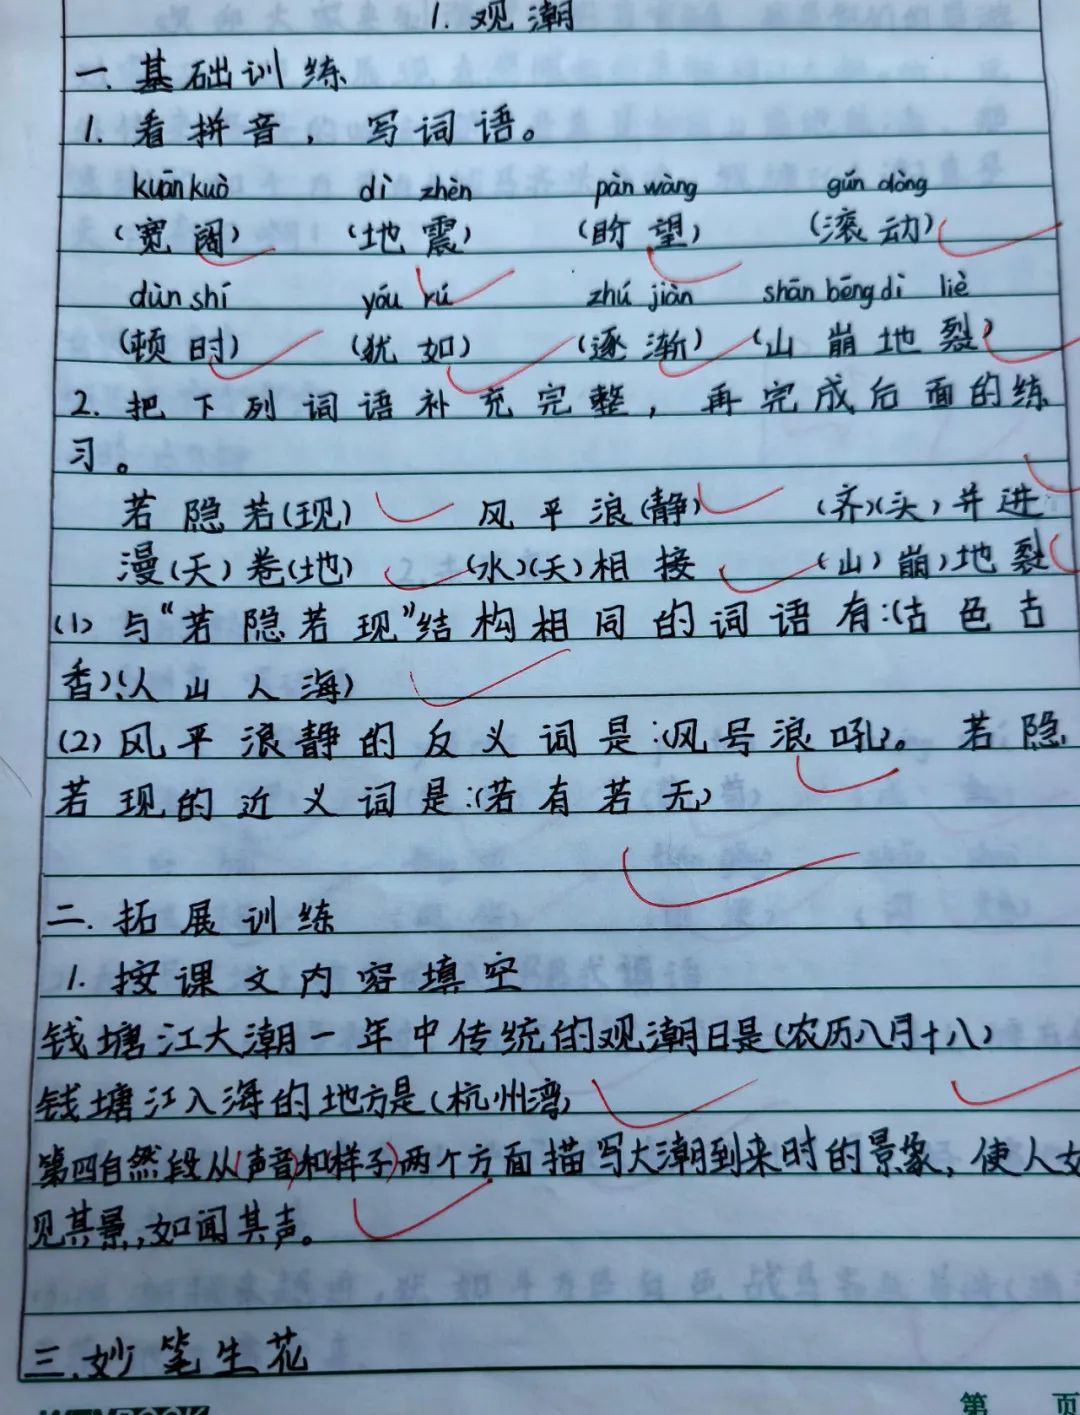 1. 观潮
一. 基础训练
1. 看拼音，写词语。
kuān kuò dì zhèn pàn wàng gǔn dòng
(宽阔) (地震) (盼望) (滚动)
dùn shí yóu rú zhú jiàn shān bēng dì liè
(顿时) (犹如) (逐渐) (山崩地裂)
2. 把下列词语补充完整，再完成后面的练
习。
若隐若(现) 风平浪(静) (齐)(头)并进
漫(天)卷(地) (水)(天)相接 (山)崩)地裂
(1) 与"若隐若现"结构相同的词语有:(古色古
香)(人山人海)
(2) 风平浪静的反义词是:(风号浪吼)。若隐
若现的近义词是:(若有若无)
二. 拓展训练
1. 按课文内容填空
钱塘江大潮一年中传统的观潮日是(农历八月十八)
钱塘江入海的地方是(杭州湾)
第四自然段从(声音)和(样子)两个方面描写大潮到来时的景象，使人如
见其景,如闻其声。
三.妙笔生花
第 页